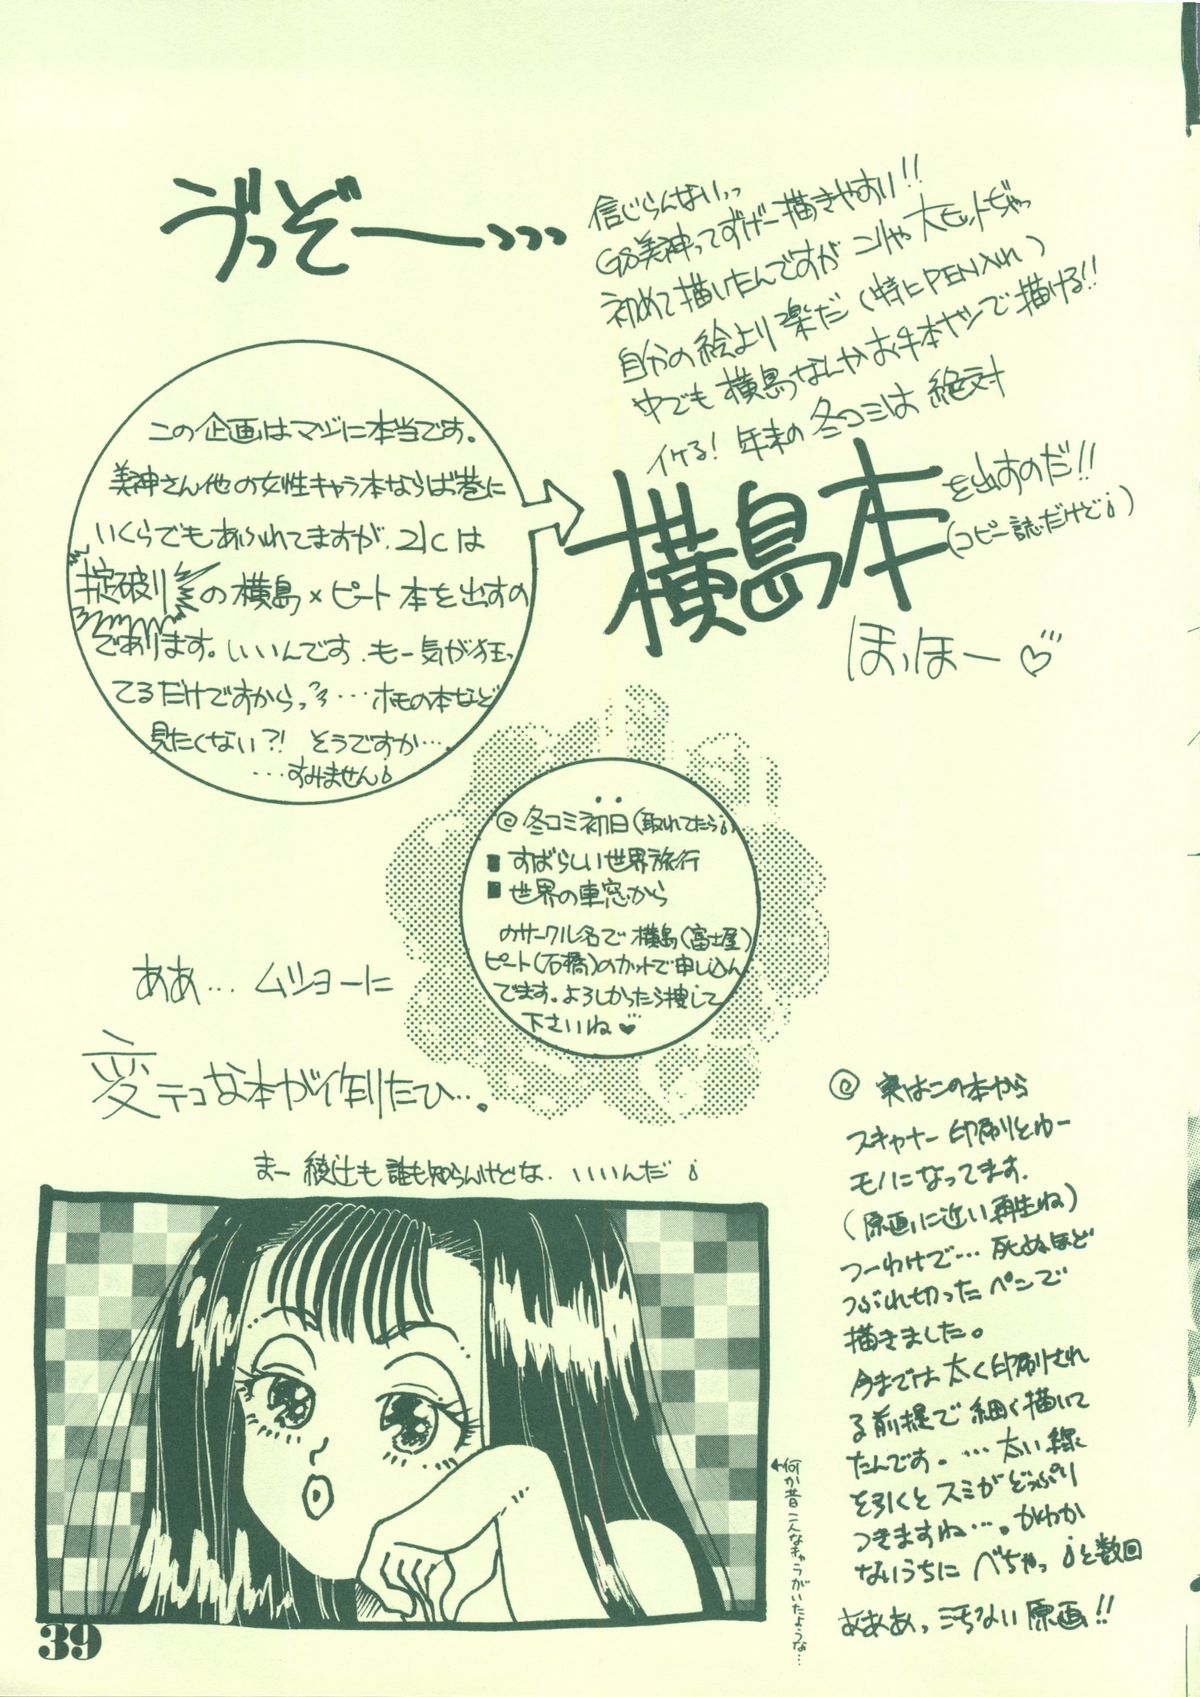 うっぞー・・・・
信じらんないっっ
GS美神ってずげー描きやすい!!
初めて描いたんですが こりゃ大ヒットぢゃっ
自分の絵より楽だ(特にPEN入れ)
中でも横島なんかお手本ナシで描ける!!
イケる! 年末の冬コミは絶対
横島本
を出すのだ!!
(コピー誌だけど)
ほっほー♡
この企画はマジに本当です。
美神さん他の女性キャラ本ならば巷に
いくらでもあふれてますが、21Cは
掟破り の横島×ピート本を出すの
であります。いいんです、もー気が狂っ
てるだけですからっ…ホモの本など
見たくない?! そうですか…
…すみません
◎冬コミ初日(取れてたら)
■すばらしい世界旅行
■世界の車窓から
のサークル名で横島(富士屋)
ピート(石橋)のカットで申し込ん
でます。よろしかったら捜して
下さいね♡
ああ… ムショーに
変テコな本が作りたひ…。
まー 綾辻も 誰も知らんけどな、いいんだ
◎ 実はこの本から
スキャナー印刷とゆー
モノになってます。
(原画に近い再生ね)
つーわけで…死ぬほど
つぶれ切ったペンで
描きました。
今までは太く印刷され
る前提で細く描いて
たんです。…太い線
を引くとスミがどっぷり
つきますね…。かわか
ないうちに べちゃっ と数回
あああっ きちない原画!!
←何か昔こんなキャラがいたような…
39